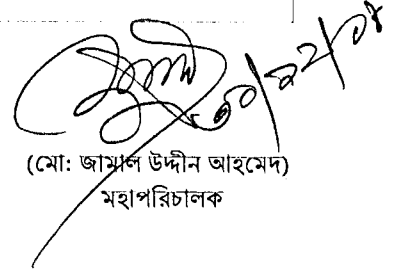 (মো: জামাল উদ্দীন আহমেদ)
মহাপরিচালক